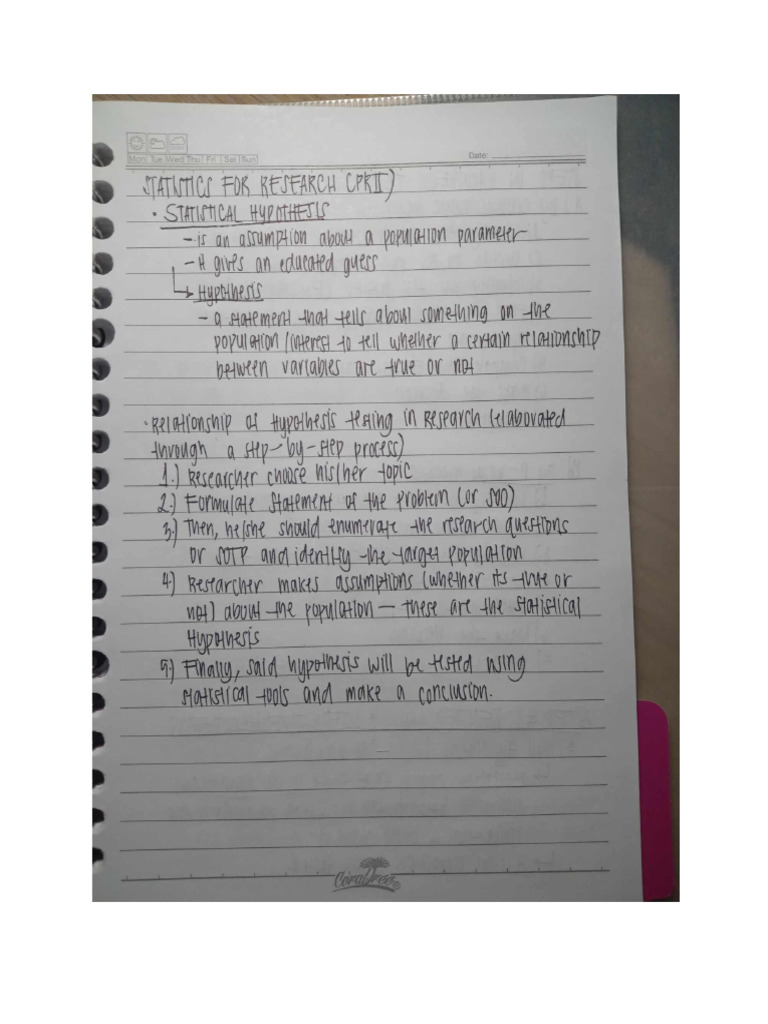 Mon Tue Wed Thu Fri Sat Sun
Date:
STATISTICS FOR RESEARCH (PRII)
• STATISTICAL HYPOTHESIS
- is an assumption about a population parameter
- it gives an educated guess
↳ Hypothesis
- a statement that tells about something on the
population/interest to tell whether a certain relationship
between variables are true or not
• Relationship of Hypothesis testing in Research (elaborated
through a step-by-step process)
1.) Researcher choose his/her topic
2.) Formulate statement of the problem (or SOP)
3.) Then, he/she should enumerate the research questions
or SOTP and identify the target population
4.) Researcher makes assumptions (whether its true or
not) about the population — these are the statistical
Hypothesis
5.) Finally, said hypothesis will be tested using
statistical tools and make a conclusion.
CoralTree